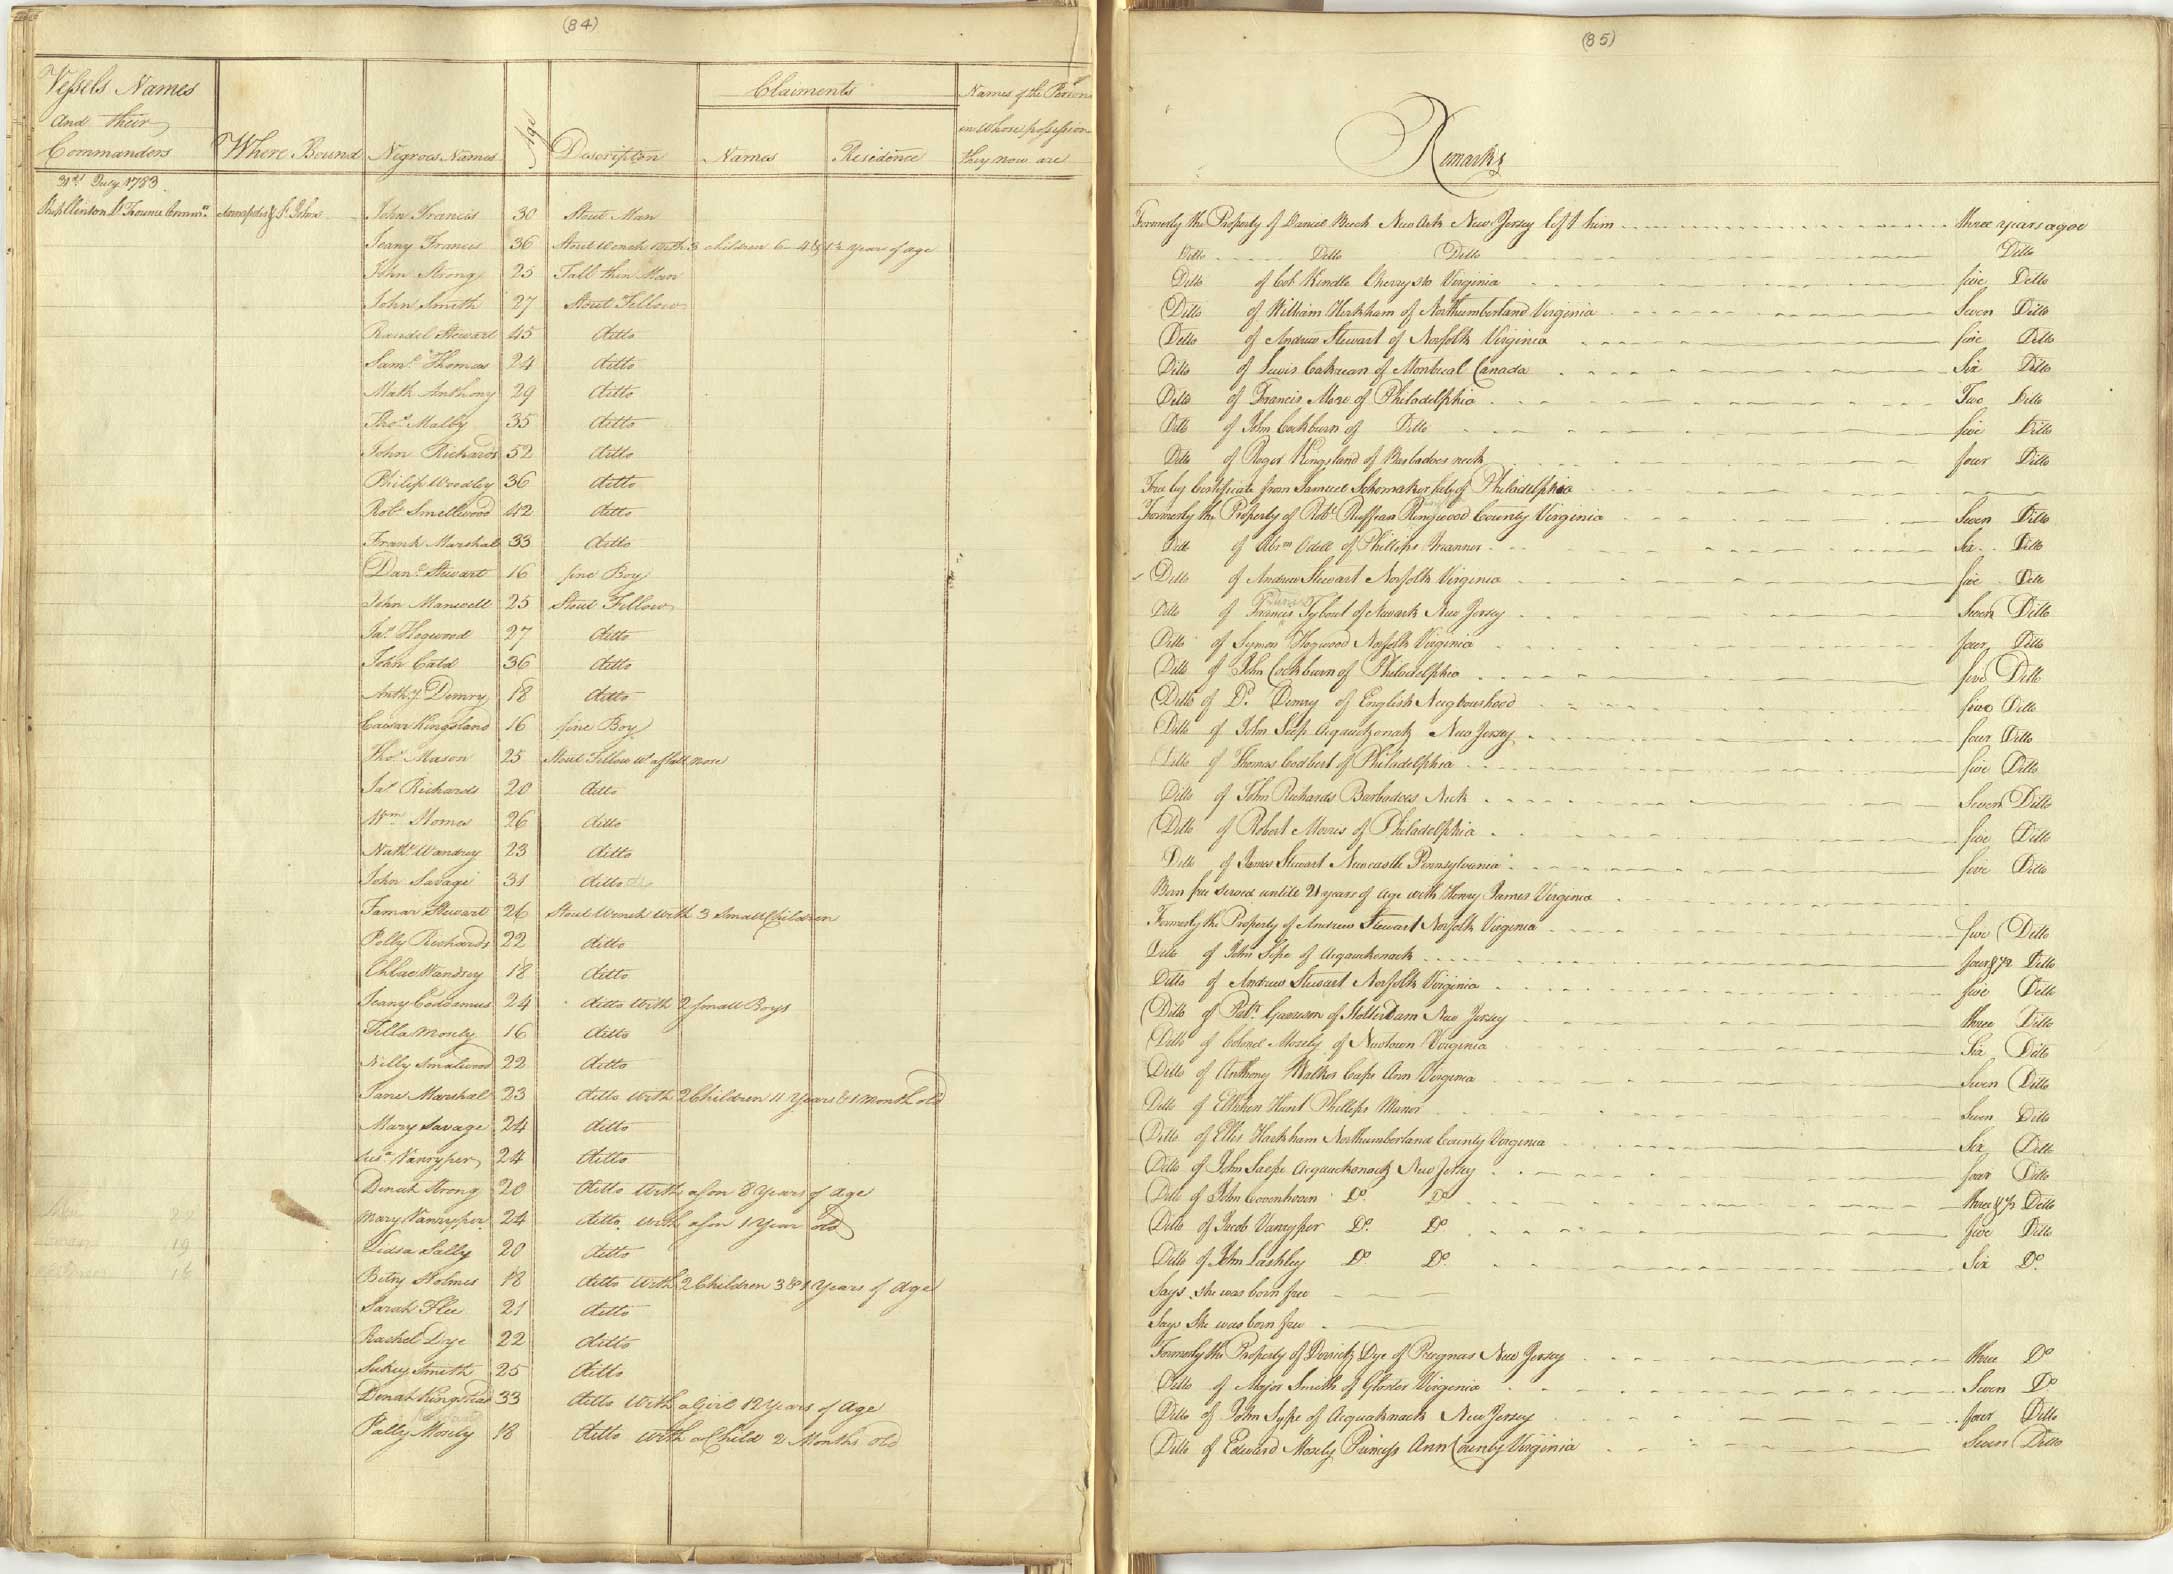 (84)
Vessels Names
and their
Commanders
Where Bound
Negroes Names
Age
Description
Claiments
Names
Residence
Names of the Persons
in whose possession
they now are
31st July 1783
Ship Clinton Annapolis & St Johns John Francis 30 Stout Man
Jeany Francis 36 Stout Wench with 3 children 6 4 & 1½ Years of age
John Strong 25 Tall thin Man
John Smith 27 Stout Fellow
Randel Stewart 45 ditto
Saml Thomas 24 ditto
Math Anthony 29 ditto
Thos Malby 35 ditto
John Richards 52 ditto
Philip Woodley 36 ditto
Robt Smellwood 42 ditto
Frank Marshal 33 ditto
Danl Stewart 16 fine Boy
John Manwell 25 Stout Fellow
Jas Hogwood 27 ditto
John Cald 36 ditto
Anthy Demry 18 ditto
Caesar Kingsland 16 fine Boy
Thos Mason 25 Stout Fellow wt a flatt nose
Jas Richards 20 ditto
Wm Momes 26 ditto
Nathl Wandrey 23 ditto
John Savage 31 ditto
Tamar Stewart 26 Stout Wench with 3 Small Children
Polly Richards 22 ditto
Chloe Wandrey 18 ditto
Jeany Coddamus 24 ditto with 2 small Boys
Tilla Mosely 16 ditto
Nelly Smalwood 22 ditto
Jane Marshal 23 ditto with 2 Children 11 Years & 1 Month old
Mary Savage 24 ditto
Susa Vanryper 24 ditto
Dinah Strong 20 ditto with a son 8 Years of age
Mary Vanryper 24 ditto with a son 1 Year old
Lidia Sally 20 ditto
Betsy Holmes 18 ditto with 2 Children 3 & 1 Years of Age
Sarah Flee 21 ditto
Rachel Dye 22 ditto
Sukey Smith 25 ditto
Dinah Kingsland 33 ditto with a Girl 12 Years of Age
Pally Mosely 18 ditto with a Child 2 Months old
(85)
Remarks
Formerly the Property of Daniel Beech New Ark New Jersey left him three years agoe
Ditto Ditto Ditto Ditto
Ditto of Col Kindle Cherrysto Virginia five Ditto
Ditto of William Harkham of Northumberland Virginia Seven Ditto
Ditto of Andrew Stewart of Norfolk Virginia five Ditto
Ditto of Lewis of Montreal Canada Six Ditto
Ditto of Francis More of Philadelphia Two Ditto
Ditto of John Cockburn of Ditto five Ditto
Ditto of Roger Kingsland of Barbadoes neck four Ditto
Free by Certificate from Samuel Schomaker late of Philadelphia
Formerly the Property of Robt Ruffean Ringwood County Virginia Seven Ditto
Ditt of Abrm Odell of Phillips Mannor Six Ditto
Ditto of Andrew Stewart Norfolk Virginia five Ditto
Ditto of Francis Tybout of Newark New Jersey Seven Ditto
Ditto of Symon Hogwood Norfolk Virginia four Ditto
Ditto of John Cockburn of Philadelphia five Ditto
Ditto of Dr Demry of English Neighbourhood four Ditto
Ditto of John Seep Acquackenack New Jersey four Ditto
Ditto of Thomas Codbert of Philadelphia five Ditto
Ditto of John Richards Barbadoes Neck Seven Ditto
Ditto of Robert Morris of Philadelphia five Ditto
Ditto of James Stewart Newcastle Pennsylvania five Ditto
Born free served untill 21 years of age with Henry James Virginia
Formerly the Property of Andrew Stewart Norfolk Virginia five Ditto
Ditto of John Sepe of Acquackenack four & ½ Ditto
Ditto of Andrew Stewart Norfolk Virginia five Ditto
Ditto of Robt Garreson of Slotterdam New Jersey three Ditto
Ditto of Colonel Mosely of Newtown Virginia Six Ditto
Ditto of Anthony Walker Cape Ann Virginia Seven Ditto
Ditto of Hunt Phillips Manor Seven Ditto
Ditto of Ellis Harkham Northumberland County Virginia Six Ditto
Ditto of John Saepe Acquackonack New Jersey four Ditto
Ditto of John Covenhoven Do Do three & ½ Ditto
Ditto of Jacob Vanryper Do Do five Ditto
Ditto of John Lashley Do Do Six Do
Says she was born free
Says She was born free
Formerly the Property of Derrick Dye of New Jersey three Do
Ditto of Major Smith of Gloster Virginia Seven Do
Ditto of John Sype of Acquaknack New Jersey four Ditto
Ditto of Edward Mosely Princess Ann County Virginia Seven Ditto